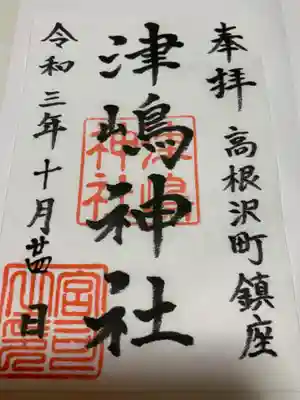 奉拝 高根沢町鎮座
津嶋神社
令和三年十月廿四日
津嶋
神社